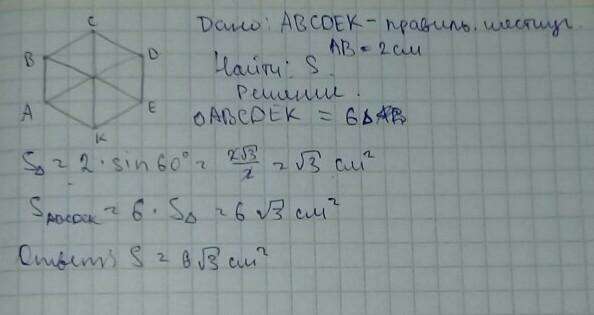 C
B D
A E
K
Дано: ABCDEK - правиль. шестиуг.
AB = 2 см
Найти: S
Решение.
ABCDEK = 6Δ
S△ = 2 · sin 60° = 2√3/2 = √3 см²
= 6 · S△ = 6 √3 см²
Ответ: S = 6√3 см²